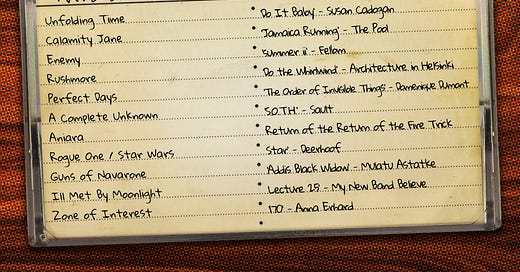 Unfolding Time
Calamity Jane
Enemy
Rushmore
Perfect Days
A Complete Unknown
Aniara
Rogue One / Star Wars
Guns of Navarone
Ill Met By Moonlight
Zone of Interest
• Do It Baby - Susan Cadogan
• 'Jamaica Running' - The Pool
• 'Summer ii' - Fellam
• 'Do the Whirlwind' - Architecture in Helsinki
• 'The Order of Invisible Things' - Domenique Dumont
• 'SOTH' - Sault
• Return of the Return of the Fire Trick
• 'Star' - Deerhoof
• 'Addis Black Widow' - Mulatu Astatke
• Lecture 25 - My New Band Believe
• '170' - Anna Erhard
•